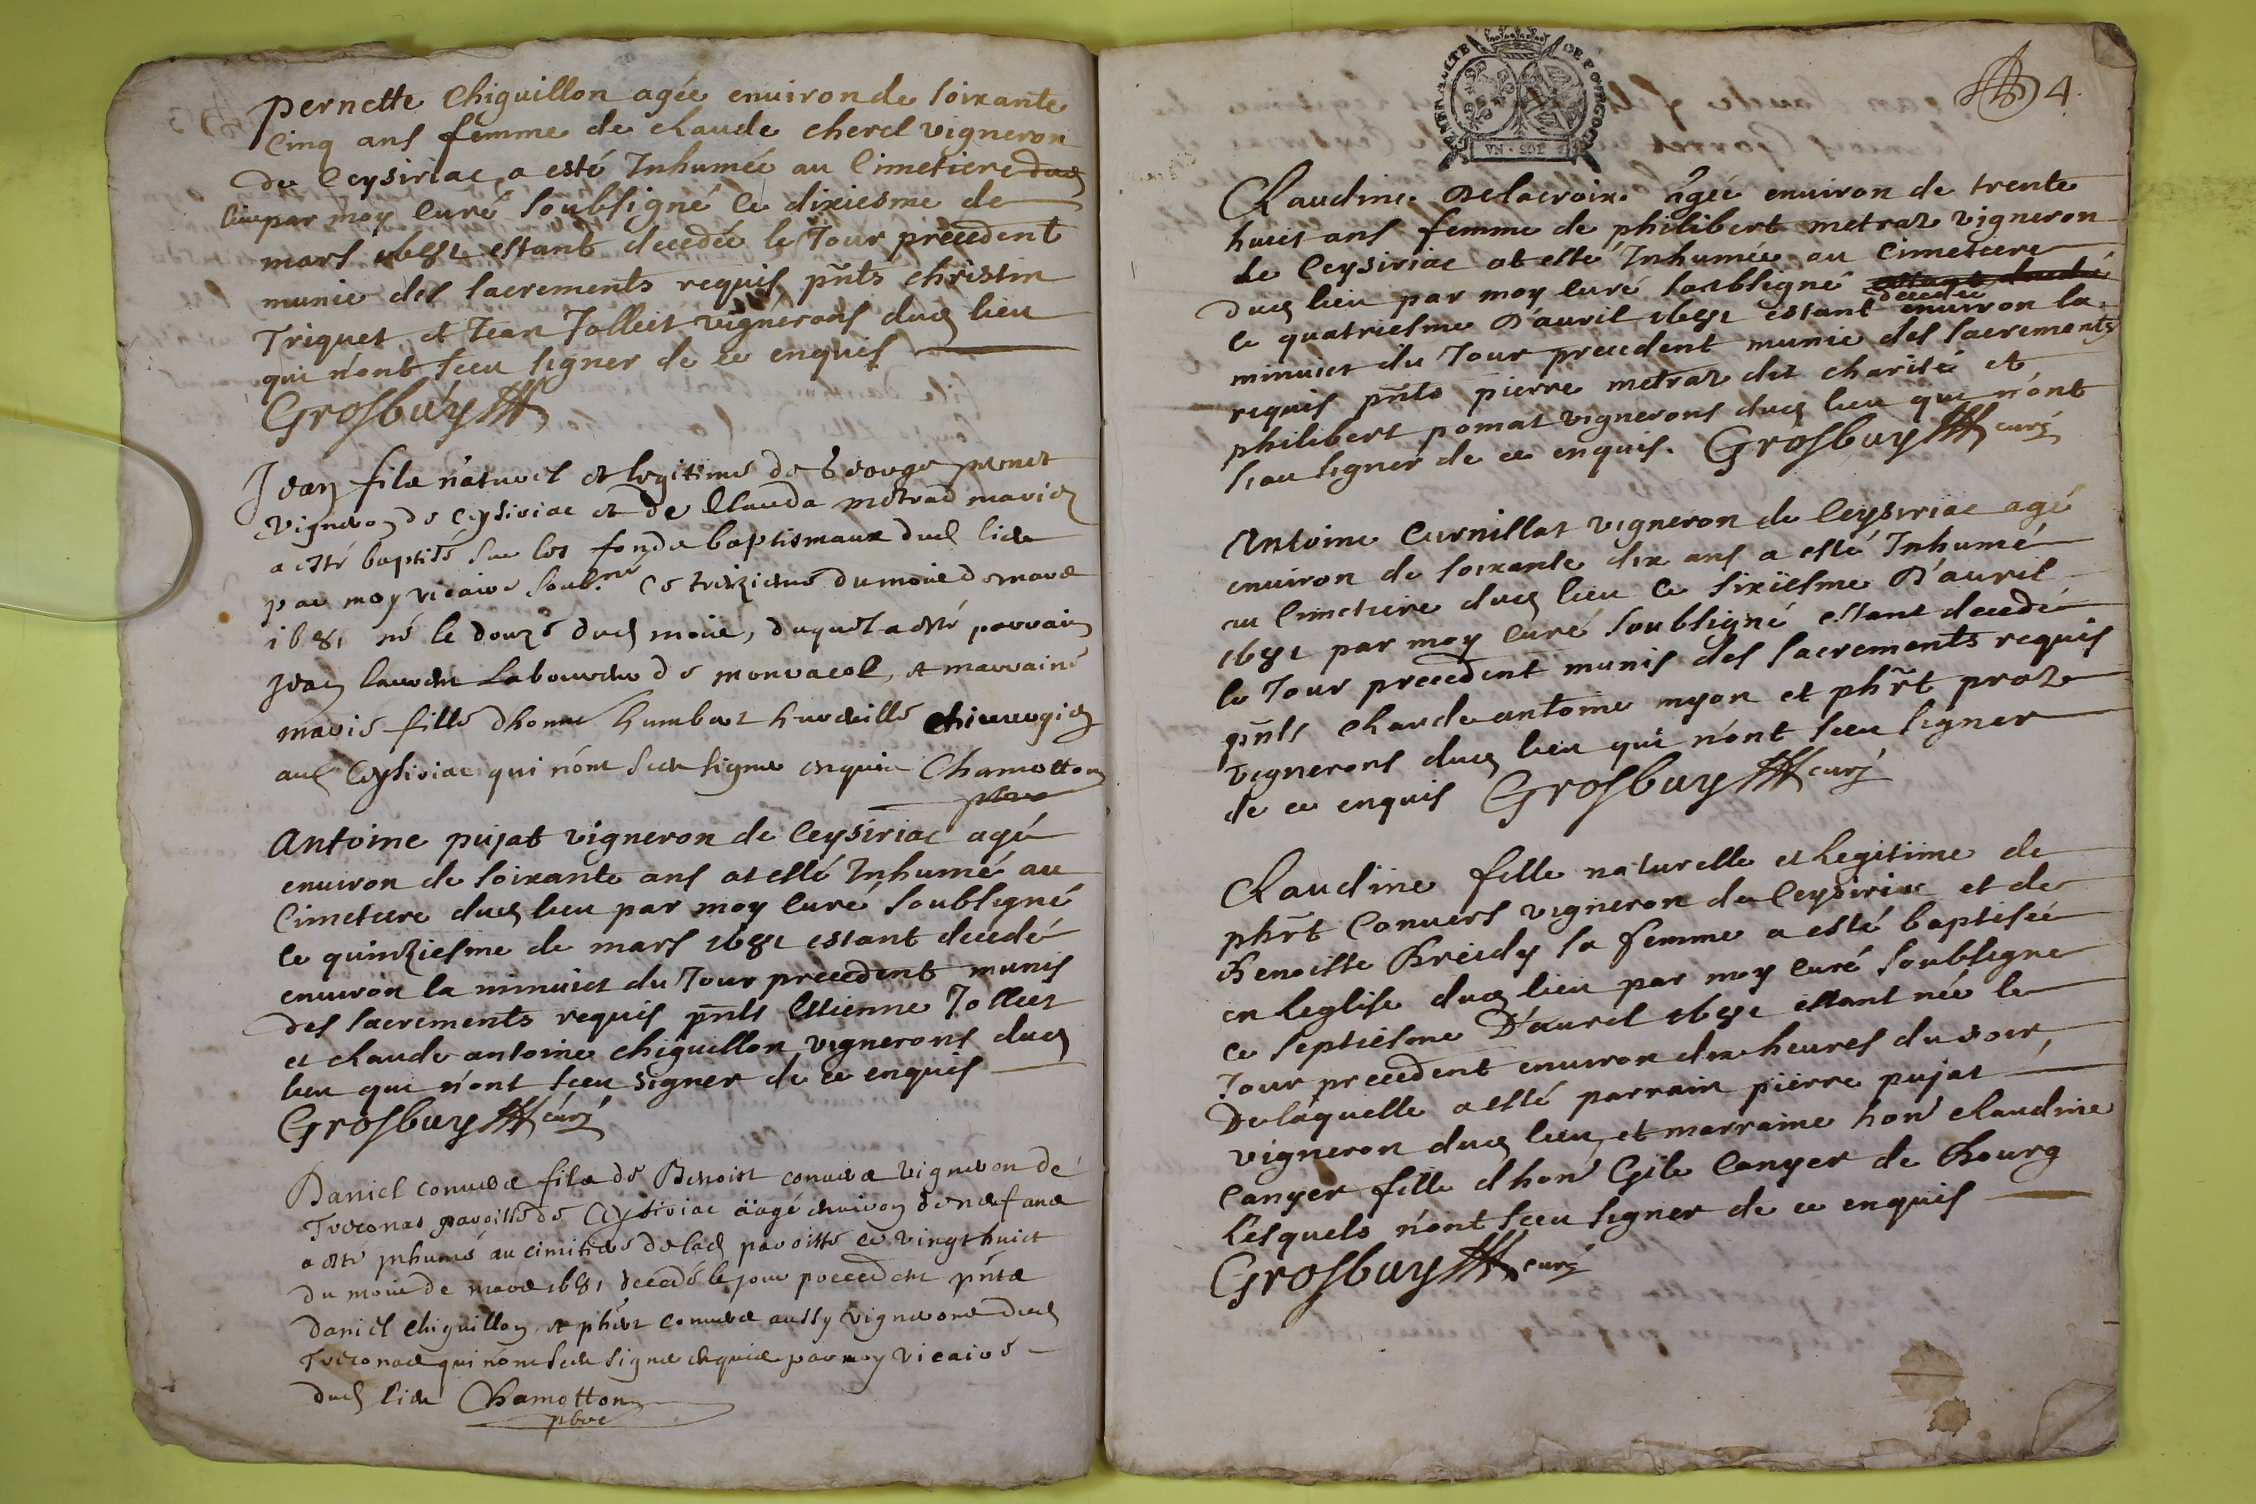 pernette Chiguillon agée environ de soixante
cinq ans femme de claude cherel vigneron
de Ceysiriac a esté Inhumée au Cimetiere dud
lieu par moy curé soubsigné le dixiesme de
mars 1681 estant decedée le Jour precedent
munie des sacrements requis pnts christin
Triquet et Jean Jolliet vignerons dud lieu
qui n'ont sceu signer de ce enquis
Grosbuy
Jean fils naturel et legitime de George
vigneron de Ceysiriac et de Clauda metrad mariez
a esté baptisé sur les fonds baptismaux dud lieu
par moy vicaire soub.né ce treizieme du mois de mars
1681 né le douze dud mois, duquel a esté parrain
Jean laboureur de monvacol, et marraine
marie fille dhonne humbert chirurgien
aud Ceysiriac qui n'ont sceu signer enquis Chamotton
pbre
Antoine pujat vigneron de Ceysiriac agé
environ de soixante ans at esté Inhumé au
Cimetiere dud lieu par moy curé soubsigné
le quinziesme de mars 1681 estant decedé
environ la minuict du Jour precedent munis
des sacrements requis pnts Estienne Jolliet
et claude antoine chiguillon vignerons dud
lieu qui n'ont sceu signer de ce enquis
Grosbuy curé
Daniel convers fils de Benoist convers vigneron de
Treconas paroisse de Ceysiriac aagé environ de neuf ans
a esté inhumé au cimitiere de lad paroisse ce vingt huict
du mois de mars 1681 decedé le jour precedent pnts
daniel chiguillon et phert convers aussy vignerons dud
Treconas qui n'ont sceu signer enquis par moy vicaire
dud lieu Chamotton
pbre
4
VN · SOL
Claudine Delacroix agée environ de trente
huict ans femme de philibert metraz vigneron
de Ceysiriac at esté Inhumée au Cimetiere
dud lieu par moy curé soubsigné estant decedé
le quatriesme D'auril 1681 estant decedée environ la
minuict du Jour precedent munie des sacrements
requis pnts pierre metraz dit charité et
philibert pomat vignerons dud lieu qui n'ont
sceu signer de ce enquis. Grosbuy curé
Antoine Curnillat vigneron de Ceysiriac agé
environ de soixante dix ans a esté Inhumé
au Cimetiere dud lieu le sixiesme D'auril
1681 par moy curé soubsigné estant decedé
le Jour precedent munis des sacrements requis
pnts claude antoine myon et phrt proz
vignerons dud lieu qui n'ont sceu signer
de ce enquis Grosbuy curé
Claudine fille naturelle et legitime de
phrt Convers vigneron de Ceysiriac et de
Benoiste Breidy sa femme a esté baptisée
en leglise dud lieu par moy curé soubsigne
ce septiesme D'auril 1681 estant née le
Jour precedent environ dix heures du soir,
De laquelle a esté parrain pierre pujat
vigneron dud lieu, et marraine hon claudine
Canyer fille d'hon Gile Canyer de Bourg
Lesquels n'ont sceu signer de ce enquis
Grosbuy curé